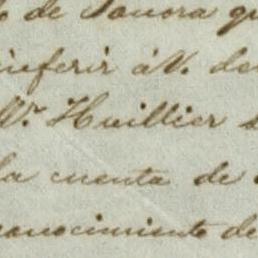 de Sonora
inferir á V. de
W.r Huillier
la cuenta de
conocimiento de